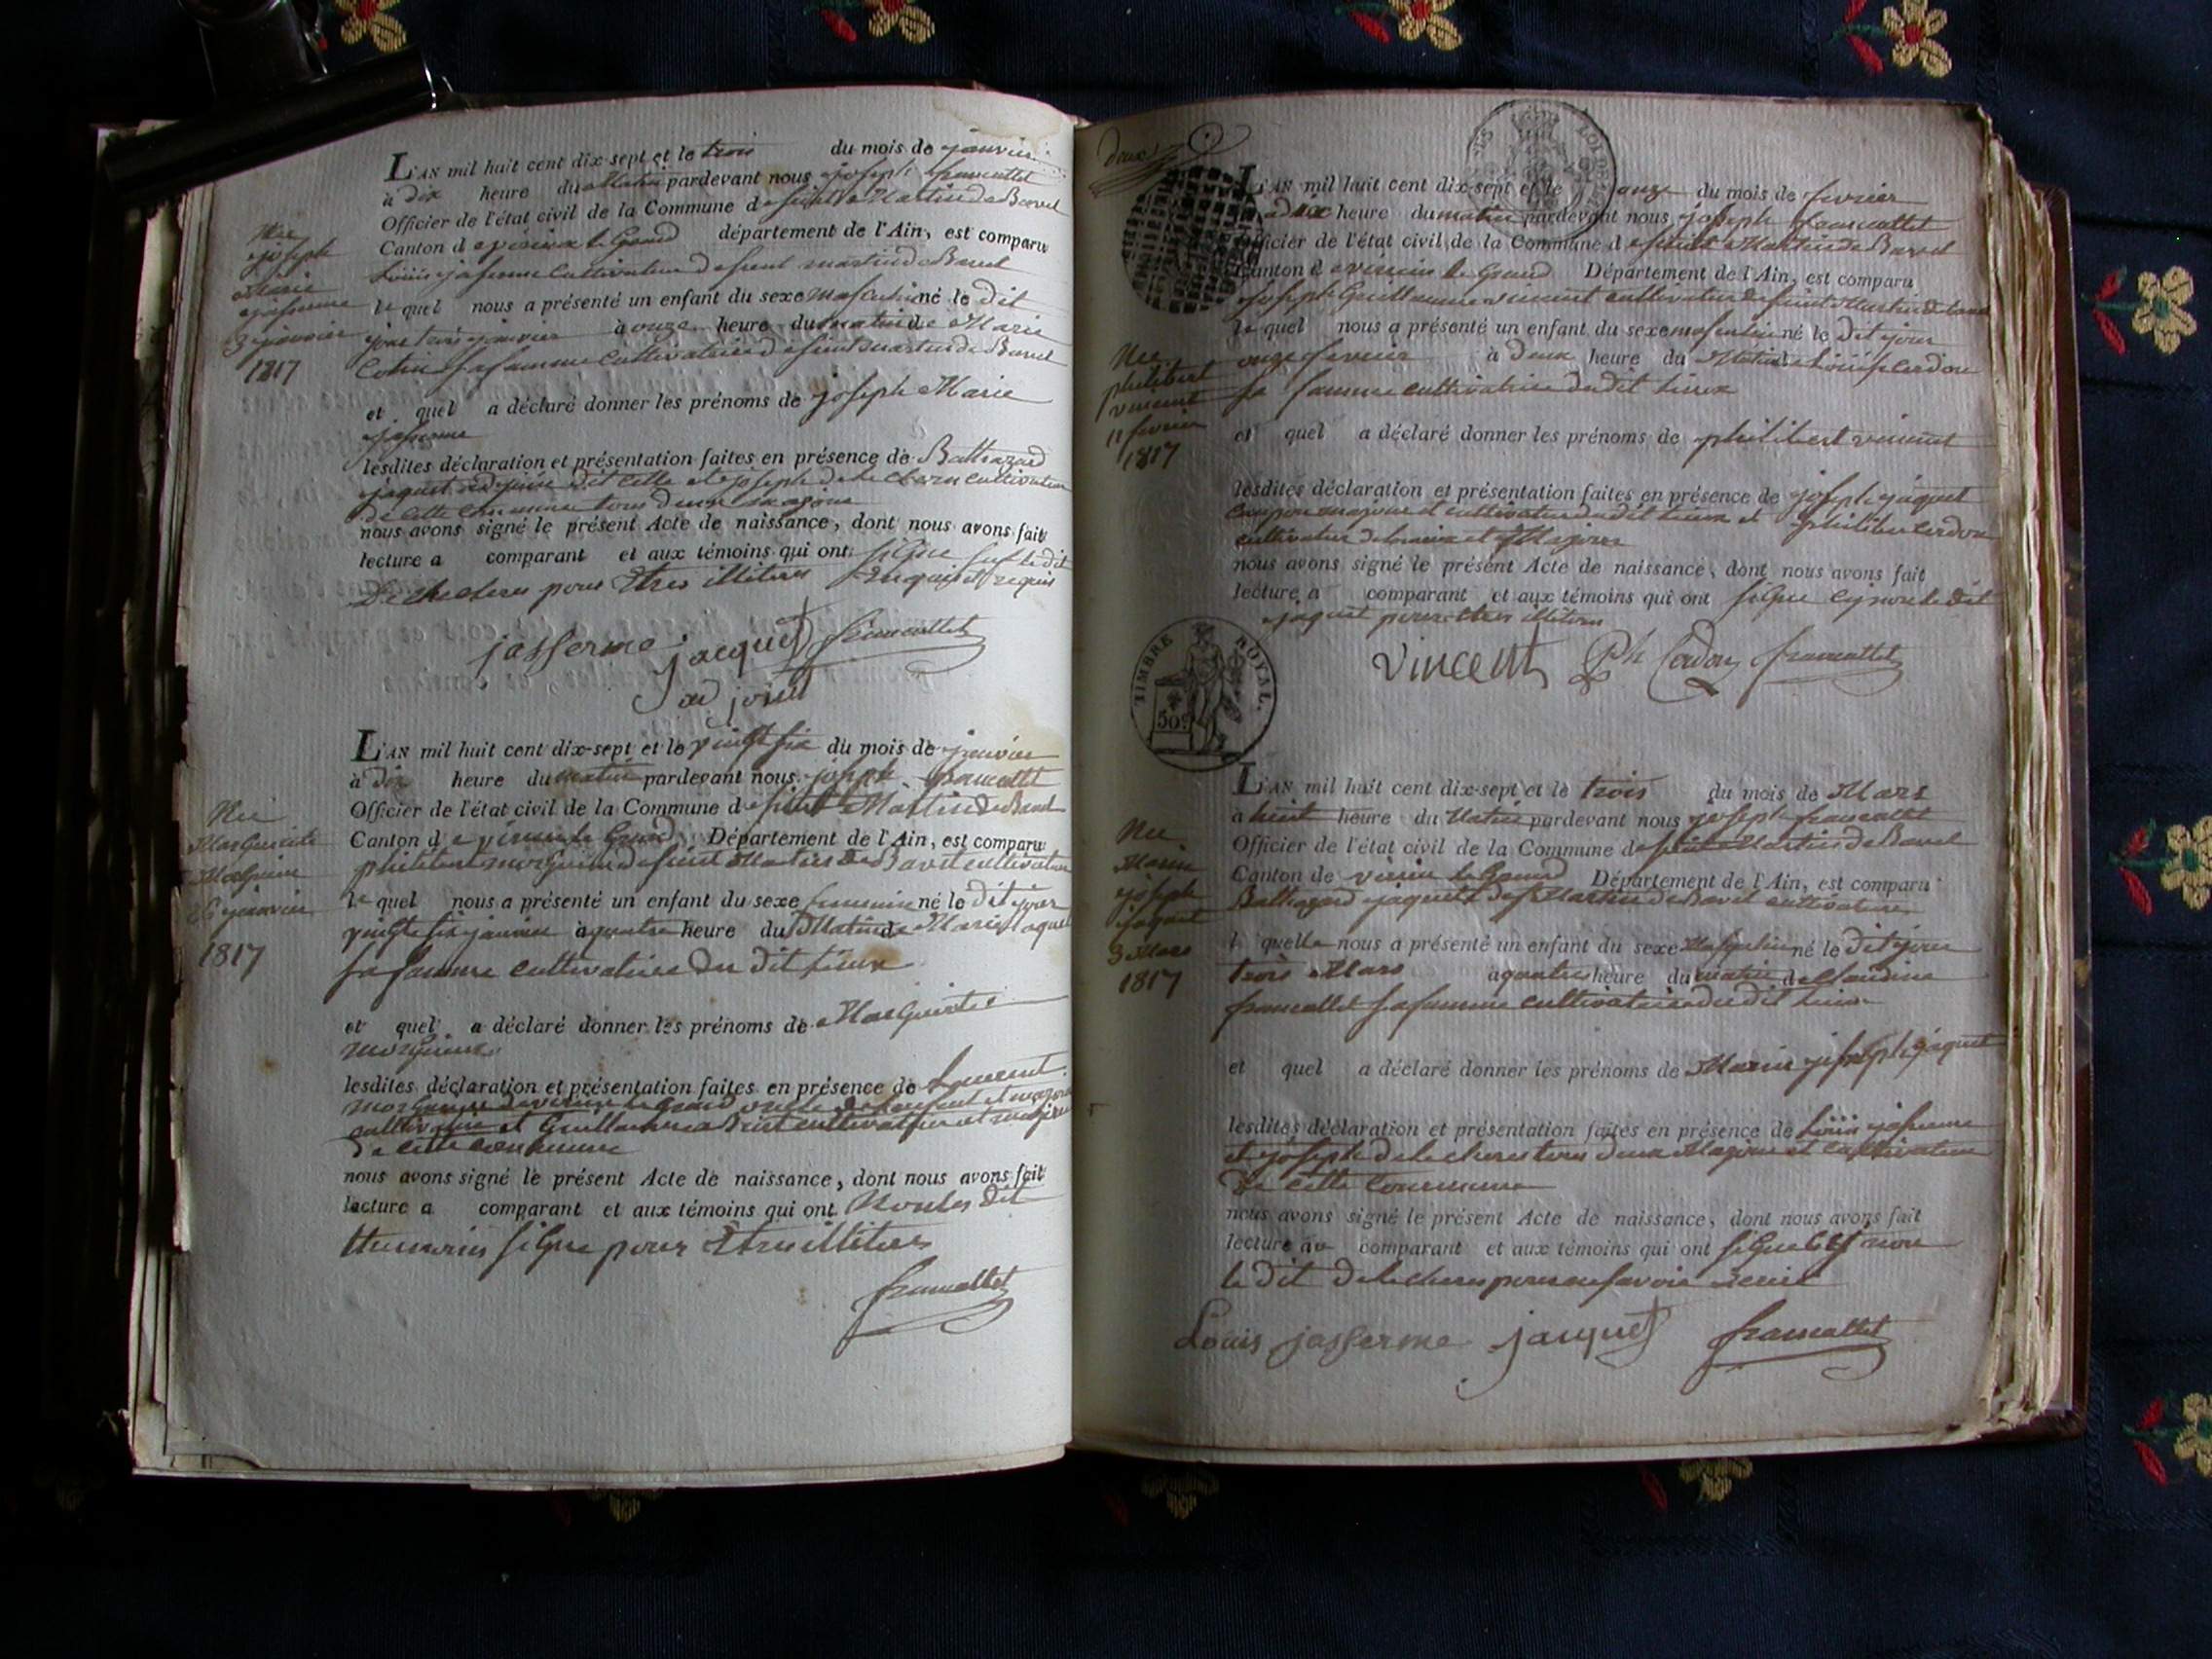 L'AN mil huit cent dix-sept et le trois du mois de janvier
à dix heure du Matin pardevant nous joseph francallet
Officier de l'état civil de la Commune de saint Martin de Bavel
Canton de virieu le Grand département de l'Ain, est comparu
Louis jasserme cultivateur de saint martin de Bavel
le quel nous a présenté un enfant du sexe masculin né le dit
jour trois janvier à onze heure du matin de Marie
Cotin sa famme cultivatrice de saint martin de Bavel
et quel a déclaré donner les prénoms de joseph Marie
jasserme
lesdites déclaration et présentation faites en présence de Balthazard
jaquet adjoint dit cette et joseph cultivateur
de cette commune tous deux majours
nous avons signé le présent Acte de naissance, dont nous avons fait
lecture a comparant et aux témoins qui ont signe le dit
pour Etres illiteres requis
jasserme jacquet francallet
adjoint
Nee
joseph
Marie
jasserme
3 janvier
1817
L'AN mil huit cent dix-sept et le vingt six du mois de janvier
à dix heure du matin pardevant nous joseph francallet
Officier de l'état civil de la Commune de saint Martin de Bavel
Canton de virieu le Grand Département de l'Ain, est comparu
philibert de saint Martin de Bavel cultivateur
le quel nous a présenté un enfant du sexe feminin né le dit jour
vingt six janvier à quatre heure du Matin de Marie jaquet
sa famme cultivatrice du dit lieux
et quel a déclaré donner les prénoms de Marguerite
lesdites déclaration et présentation faites en présence de Laurent
de virieu le grand oncle de l'enfant et majour
cultivateur et Guillaume cultivateur et majour
de cette commune
nous avons signé le présent Acte de naissance, dont nous avons fait
lecture a comparant et aux témoins qui ont dit
signe pour Etre illiteres
francallet
Nee
Marguerite
26 janvier
1817
deux
L'AN mil huit cent dix-sept et le onze du mois de fevrier
a dix heure du matin pardevant nous joseph francallet
Officier de l'état civil de la Commune de saint Martin de Bavel
Canton de virieu le Grand Département de l'Ain, est comparu
joseph Guillaume vincent cultivateur de saint Martin de bavel
le quel nous a présenté un enfant du sexe masculin né le dit jour
onze fevrier à deux heure du Matin de Louise Cerdon
sa famme cultivatrice du dit lieux
et quel a déclaré donner les prénoms de philibert vincent
lesdites déclaration et présentation faites en présence de joseph jaquet
majour et cultivateur du dit lieux et philibert Cerdon
cultivateur et Majour
nous avons signé le présent Acte de naissance, dont nous avons fait
lecture a comparant et aux témoins qui ont signe le dit
jaquet pour etres illiteres
vincent Ph Cerdon francallet
Nee
philibert
vincent
11 fevrier
1817
TIMBRE ROYAL.
50c
L'AN mil huit cent dix-sept et le trois du mois de Mars
a huit heure du Matin pardevant nous joseph francallet
Officier de l'état civil de la Commune de saint Martin de Bavel
Canton de virieu le Grand Département de l'Ain, est comparu
Balthazard jaquet de st Martin de Bavel cultivateur
l quelle nous a présenté un enfant du sexe Masculin né le dit jour
trois Mars a quatre heure du matin de Claudine
francallet sa famme cultivatrice du dit lieux
et quel a déclaré donner les prénoms de Marin joseph jaquet
lesdites déclaration et présentation faites en présence de Louis jasserme
et joseph tous deux Majours et cultivateur
de cette Commune
nous avons signé le présent Acte de naissance, dont nous avons fait
lecture au comparant et aux témoins qui ont signe et non
le dit pour ne savoir ecrire
Louis jasserme jacquet francallet
Nee
Marin
joseph
jaquet
3 Mars
1817